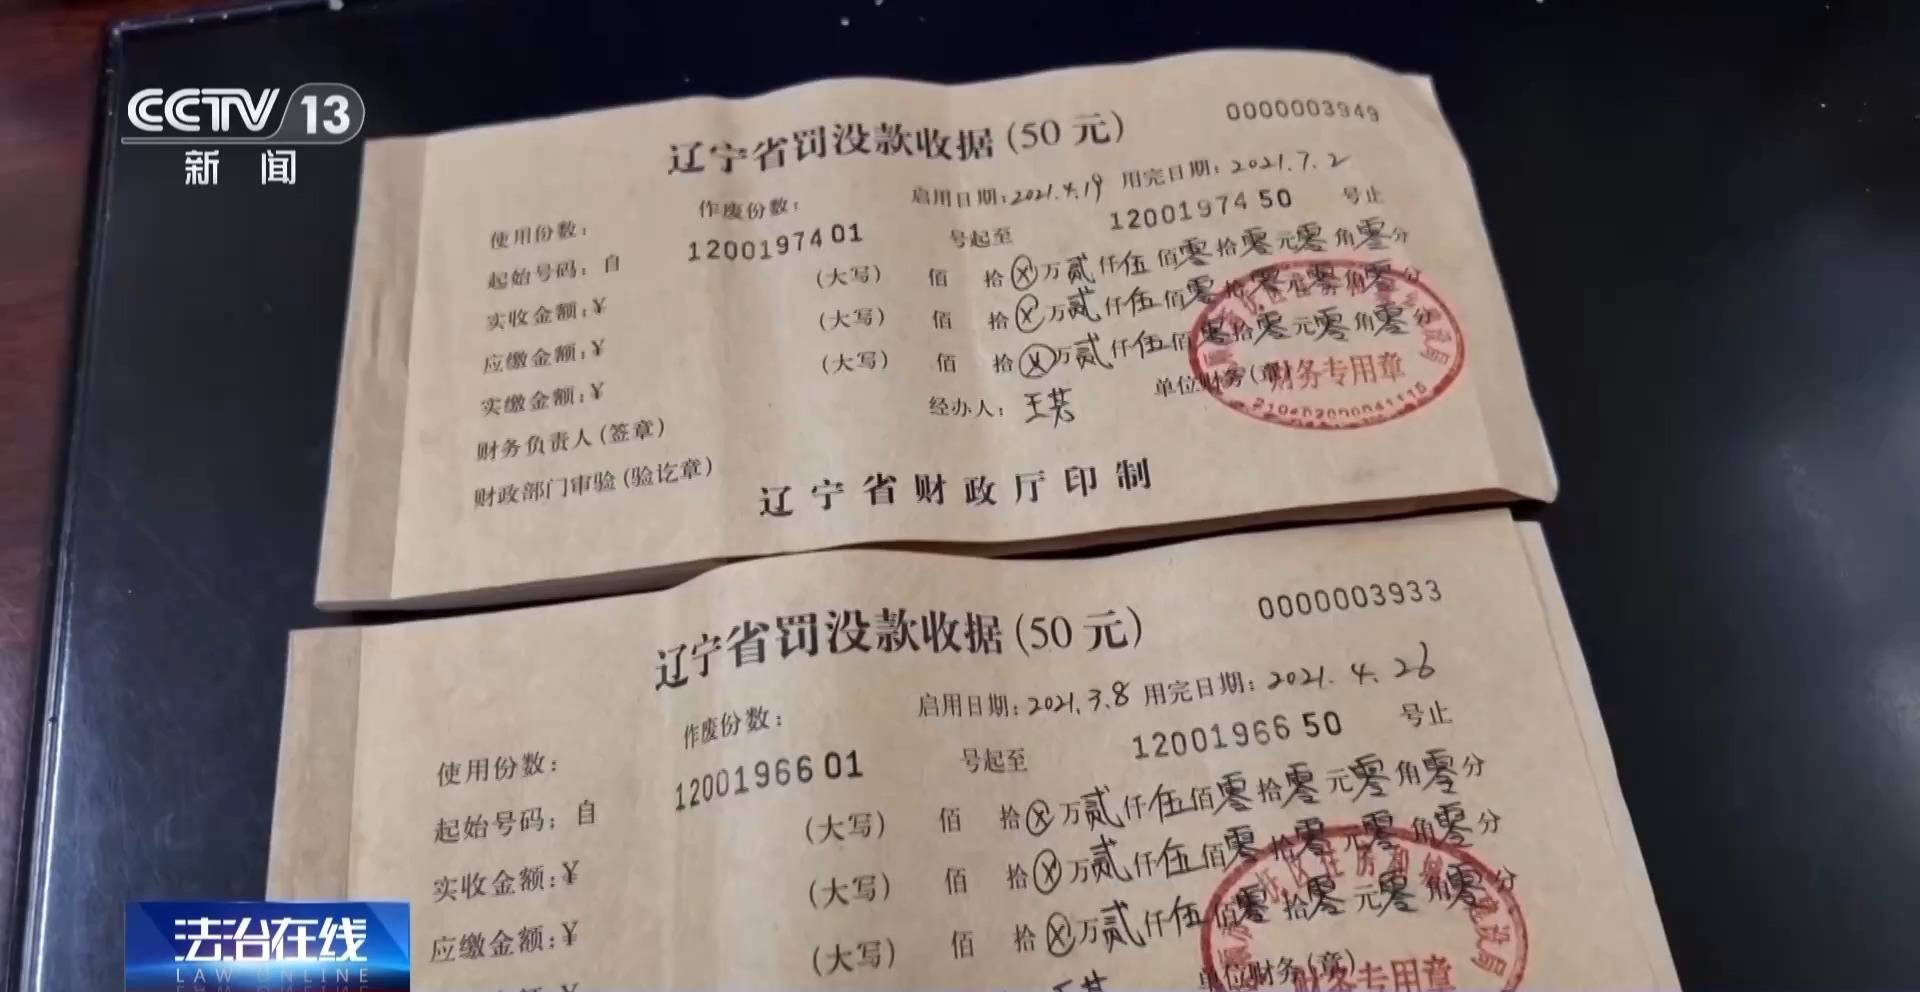 CCTV 13
新闻
辽宁省罚没款收据(50元)
0000003949
使用份数：
作废份数：
启用日期：2021.4.19 用完日期：2021.7.2
起始号码：自 1200197401 号起至 1200197450 号止
实收金额：¥ (大写) 佰 拾ⓧ万贰仟伍佰零拾零元零角零分
应缴金额：¥ (大写) 佰 拾ⓧ万贰仟伍佰零拾零元零角零分
实缴金额：¥ (大写) 佰 拾ⓧ万贰仟伍佰零拾零元零角零分
财务负责人(签章) 经办人： 单位财务(章)
财务专用章
财政部门审验(验讫章)
辽宁省财政厅印制
辽宁省罚没款收据(50元)
0000003933
使用份数：
作废份数：
启用日期：2021.3.8 用完日期：2021.4.26
起始号码：自 1200196601 号起至 1200196650 号止
实收金额：¥ (大写) 佰 拾ⓧ万贰仟伍佰零拾零元零角零分
应缴金额：¥ (大写) 佰 拾ⓧ万贰仟伍佰零拾零元零角零分
(大写) 佰 拾ⓧ万贰仟伍佰零拾零元零角零分
单位财务(章)
财务专用章
法治在线
LAW ONLINE